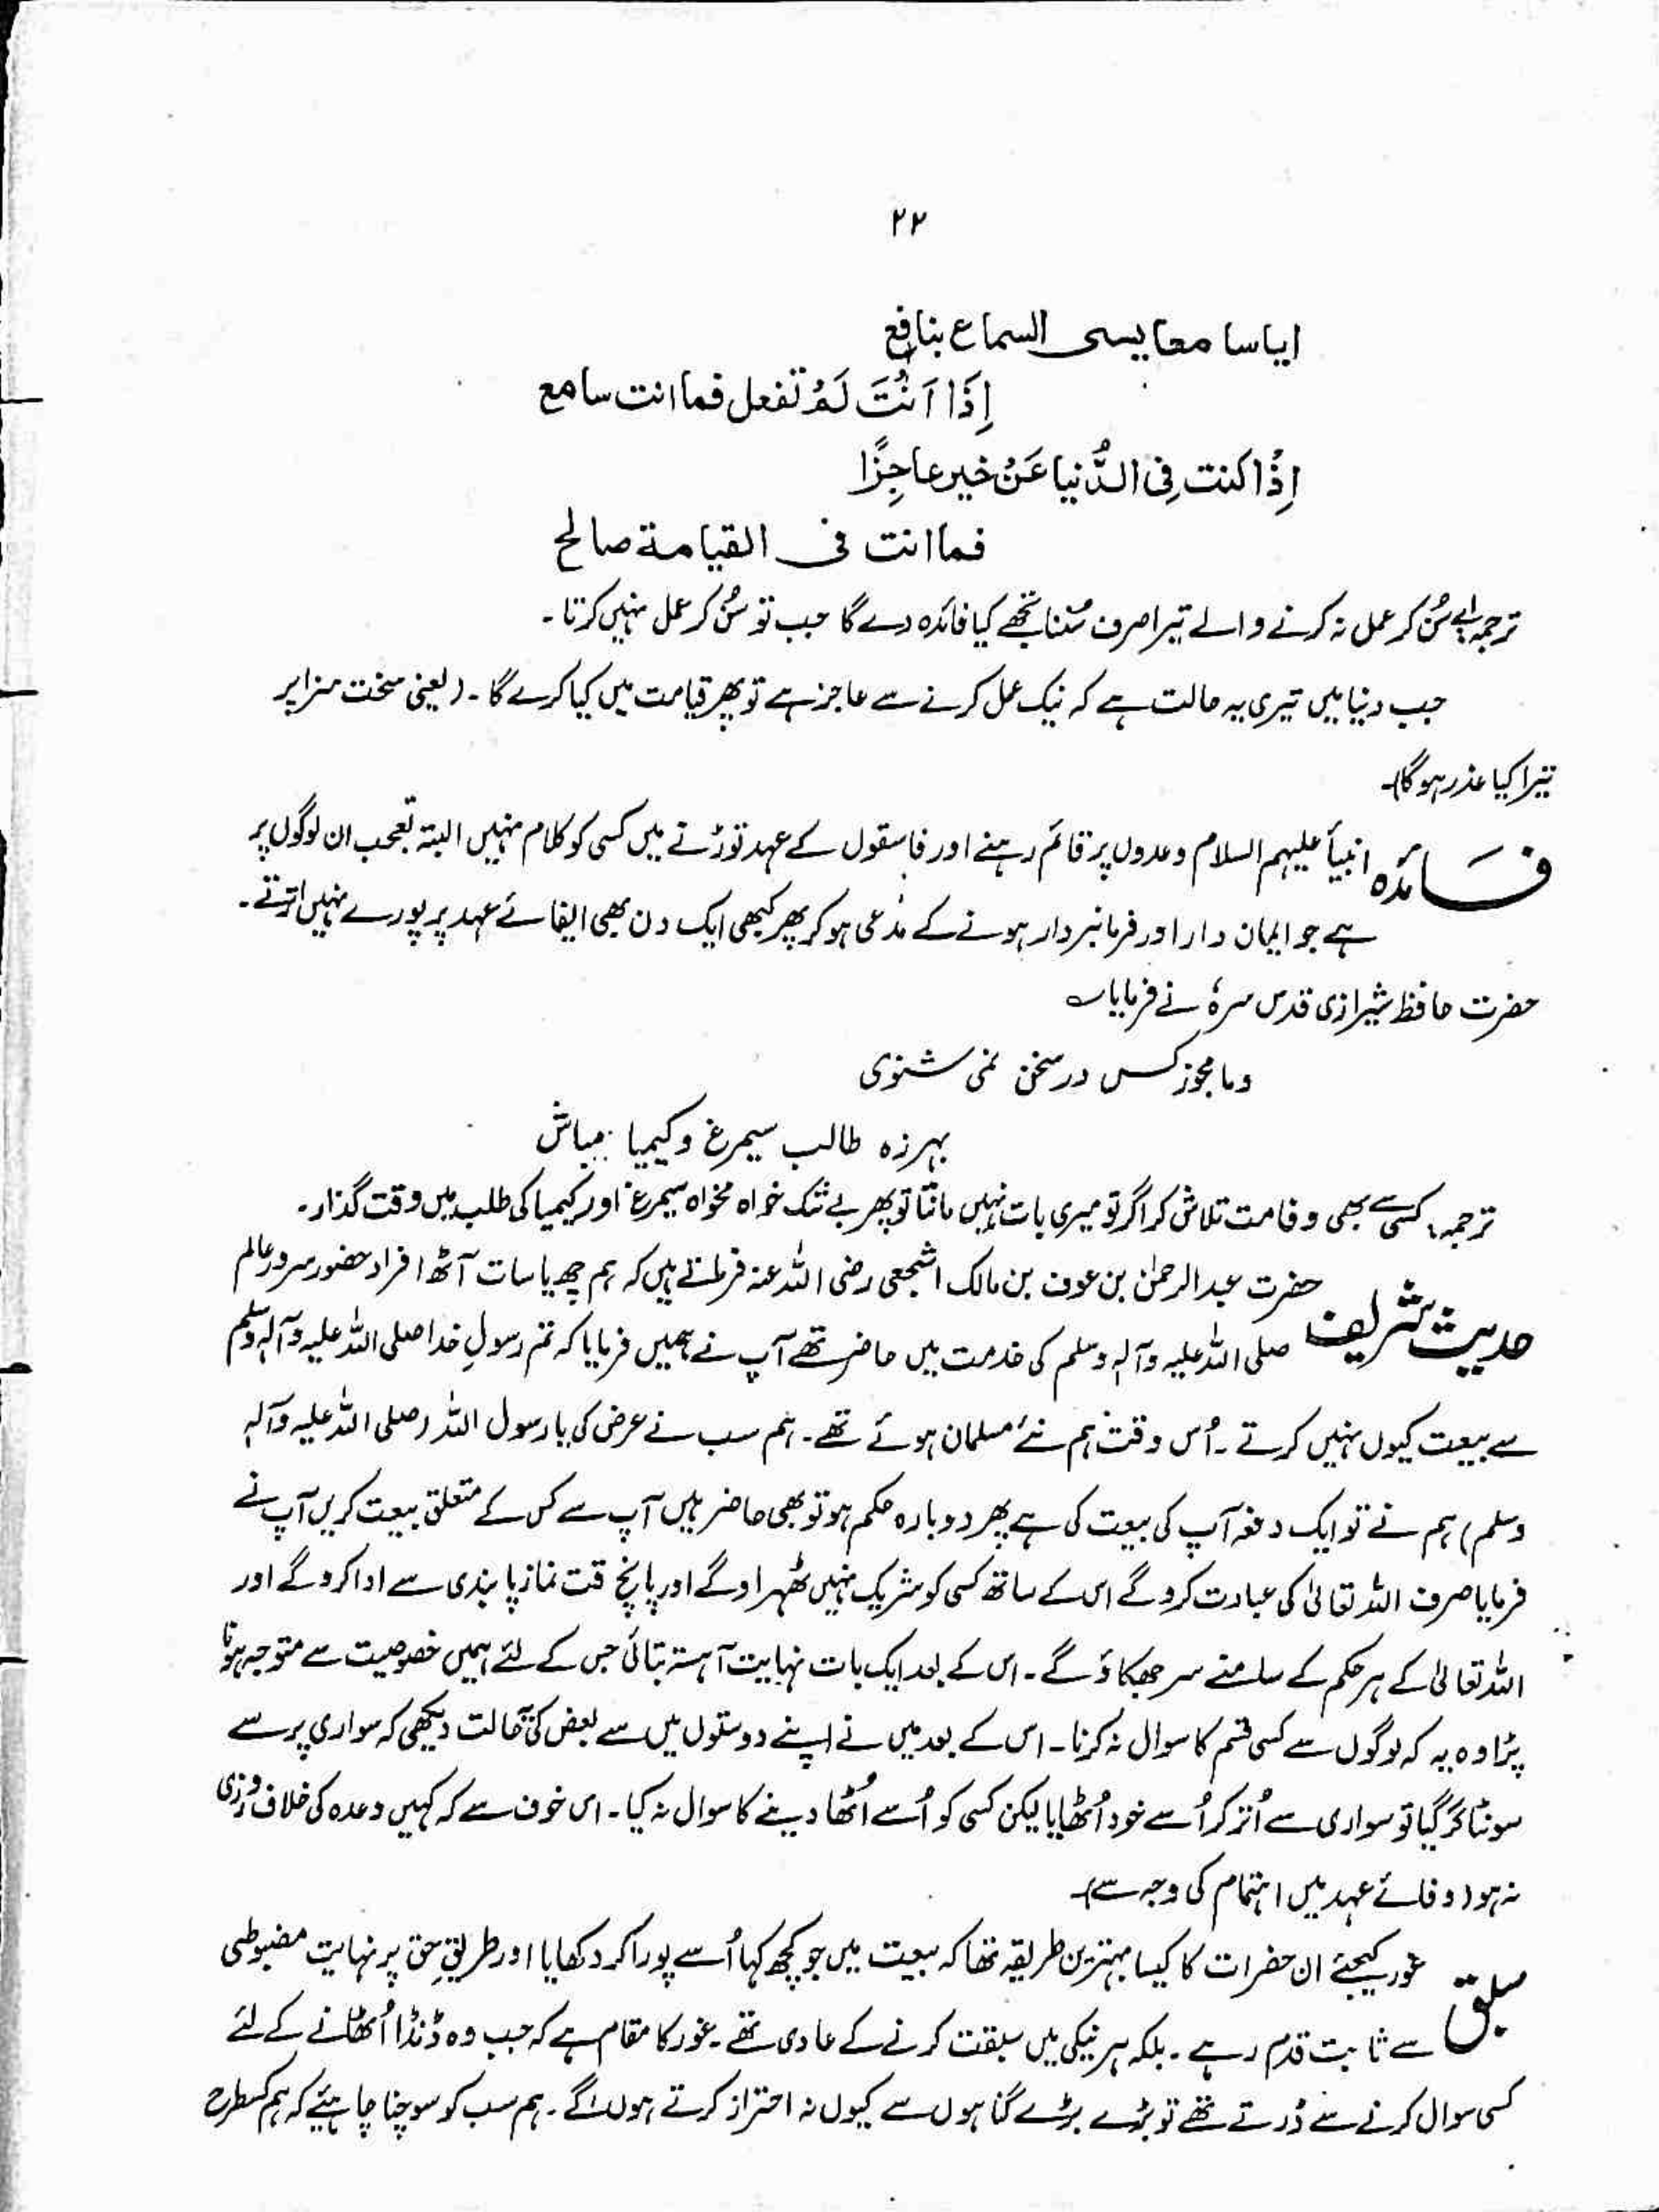 ۲۲
ایاسا معا یسی السماع بنافع
اِذَا اَنْتَ لَمْ تفعل فما انت سامع
اِذَا کنت فِی الدُّنیا عَنْ خیر عاجِزًا
فما انت فی القیامة صالح
ترجمہ: اے سُن کر عمل نہ کرنے والے تیرا صرف سُننا تجھے کیا فائدہ دے گا جب تو سُن کر عمل نہیں کرتا ۔
جب دنیا میں تیری یہ حالت ہے کہ نیک عمل کرنے سے عاجز ہے تو پھر قیامت میں کیا کرے گا ۔ (یعنی سخت سزا پر
تیرا کیا عذر ہوگا)۔
فائدہ انبیأ علیہم السلام وعدوں پر قائم رہنے اور فاسقوں کے عہد توڑنے میں کسی کو کلام نہیں البتہ تعجب ان لوگوں پر
ہے جو ایمان دار اور فرمانبردار ہونے کے مدعی ہو کر پھر کبھی ایک دن بھی ایفائے عہد پر پورے نہیں اترتے ۔
حضرت حافظ شیرازی قدس سرہٗ نے فرمایا ؎
وما مجوز کس در سخن نمی شنوی
بہرزہ طالب سیمرغ و کیمیا مباش
ترجمہ: کسی سے بھی وفا مت تلاش کر اگر تو میری بات نہیں مانتا تو پھر بے شک خواہ مخواہ سیمرغ اور کیمیا کی طلب میں وقت گذار ۔
حدیث شریف حضرت عبدالرحمٰن بن عوف بن مالک اشجعی رضی اللہ عنہ فرماتے ہیں کہ ہم چھ یا سات آٹھ افراد حضور سرور عالم
صلی اللہ علیہ وآلہٖ وسلم کی خدمت میں حاضر تھے آپ نے ہمیں فرمایا کہ تم رسولِ خدا صلی اللہ علیہ وآلہٖ وسلم
سے بیعت کیوں نہیں کرتے ۔ اُس وقت ہم نئے مسلمان ہوئے تھے ۔ ہم سب نے عرض کی یا رسول اللہ (صلی اللہ علیہ وآلہٖ
وسلم) ہم نے تو ایک دفعہ آپ کی بیعت کی ہے پھر دوبارہ حکم ہو تو بھی حاضر ہیں آپ سے کس کے متعلق بیعت کریں آپ نے
فرمایا صرف اللہ تعالیٰ کی عبادت کرو گے اس کے ساتھ کسی کو شریک نہیں ٹھہراو گے اور پانچ قت نماز پابندی سے ادا کرو گے اور
اللہ تعالیٰ کے ہر حکم کے سامنے سر جھکاؤ گے ۔ اس کے بعد ایک بات نہایت آہستہ بتائی جس کے لئے ہمیں خصوصیت سے متوجہ ہونا
پڑا وہ یہ کہ لوگوں سے کسی قسم کا سوال نہ کرنا ۔ اس کے بعد میں نے اپنے دوستوں میں سے بعض کی حالت دیکھی کہ سواری پر سے
سونٹا گر گیا تو سواری سے اُتر کر اُسے خود اُٹھایا لیکن کسی کو اُسے اُٹھا دینے کا سوال نہ کیا ۔ اس خوف سے کہ کہیں وعدہ کی خلاف ورزی
نہ ہو (وفائے عہد میں اہتمام کی وجہ سے)۔
سبق غور کیجئے ان حضرات کا کیسا بہترین طریقہ تھا کہ بیعت میں جو کچھ کہا اُسے پورا کر دکھایا اور طریقِ حق پر نہایت مضبوطی
سے ثابت قدم رہے ۔ بلکہ ہر نیکی میں سبقت کرنے کے عادی تھے ۔ غور کا مقام ہے کہ جب وہ ڈنڈا اُٹھانے کے لئے
کسی سوال کرنے سے ڈرتے تھے تو بڑے بڑے گناہوں سے کیوں نہ احتراز کرتے ہوں گے ۔ ہم سب کو سوچنا چاہیئے کہ ہم کسطرح